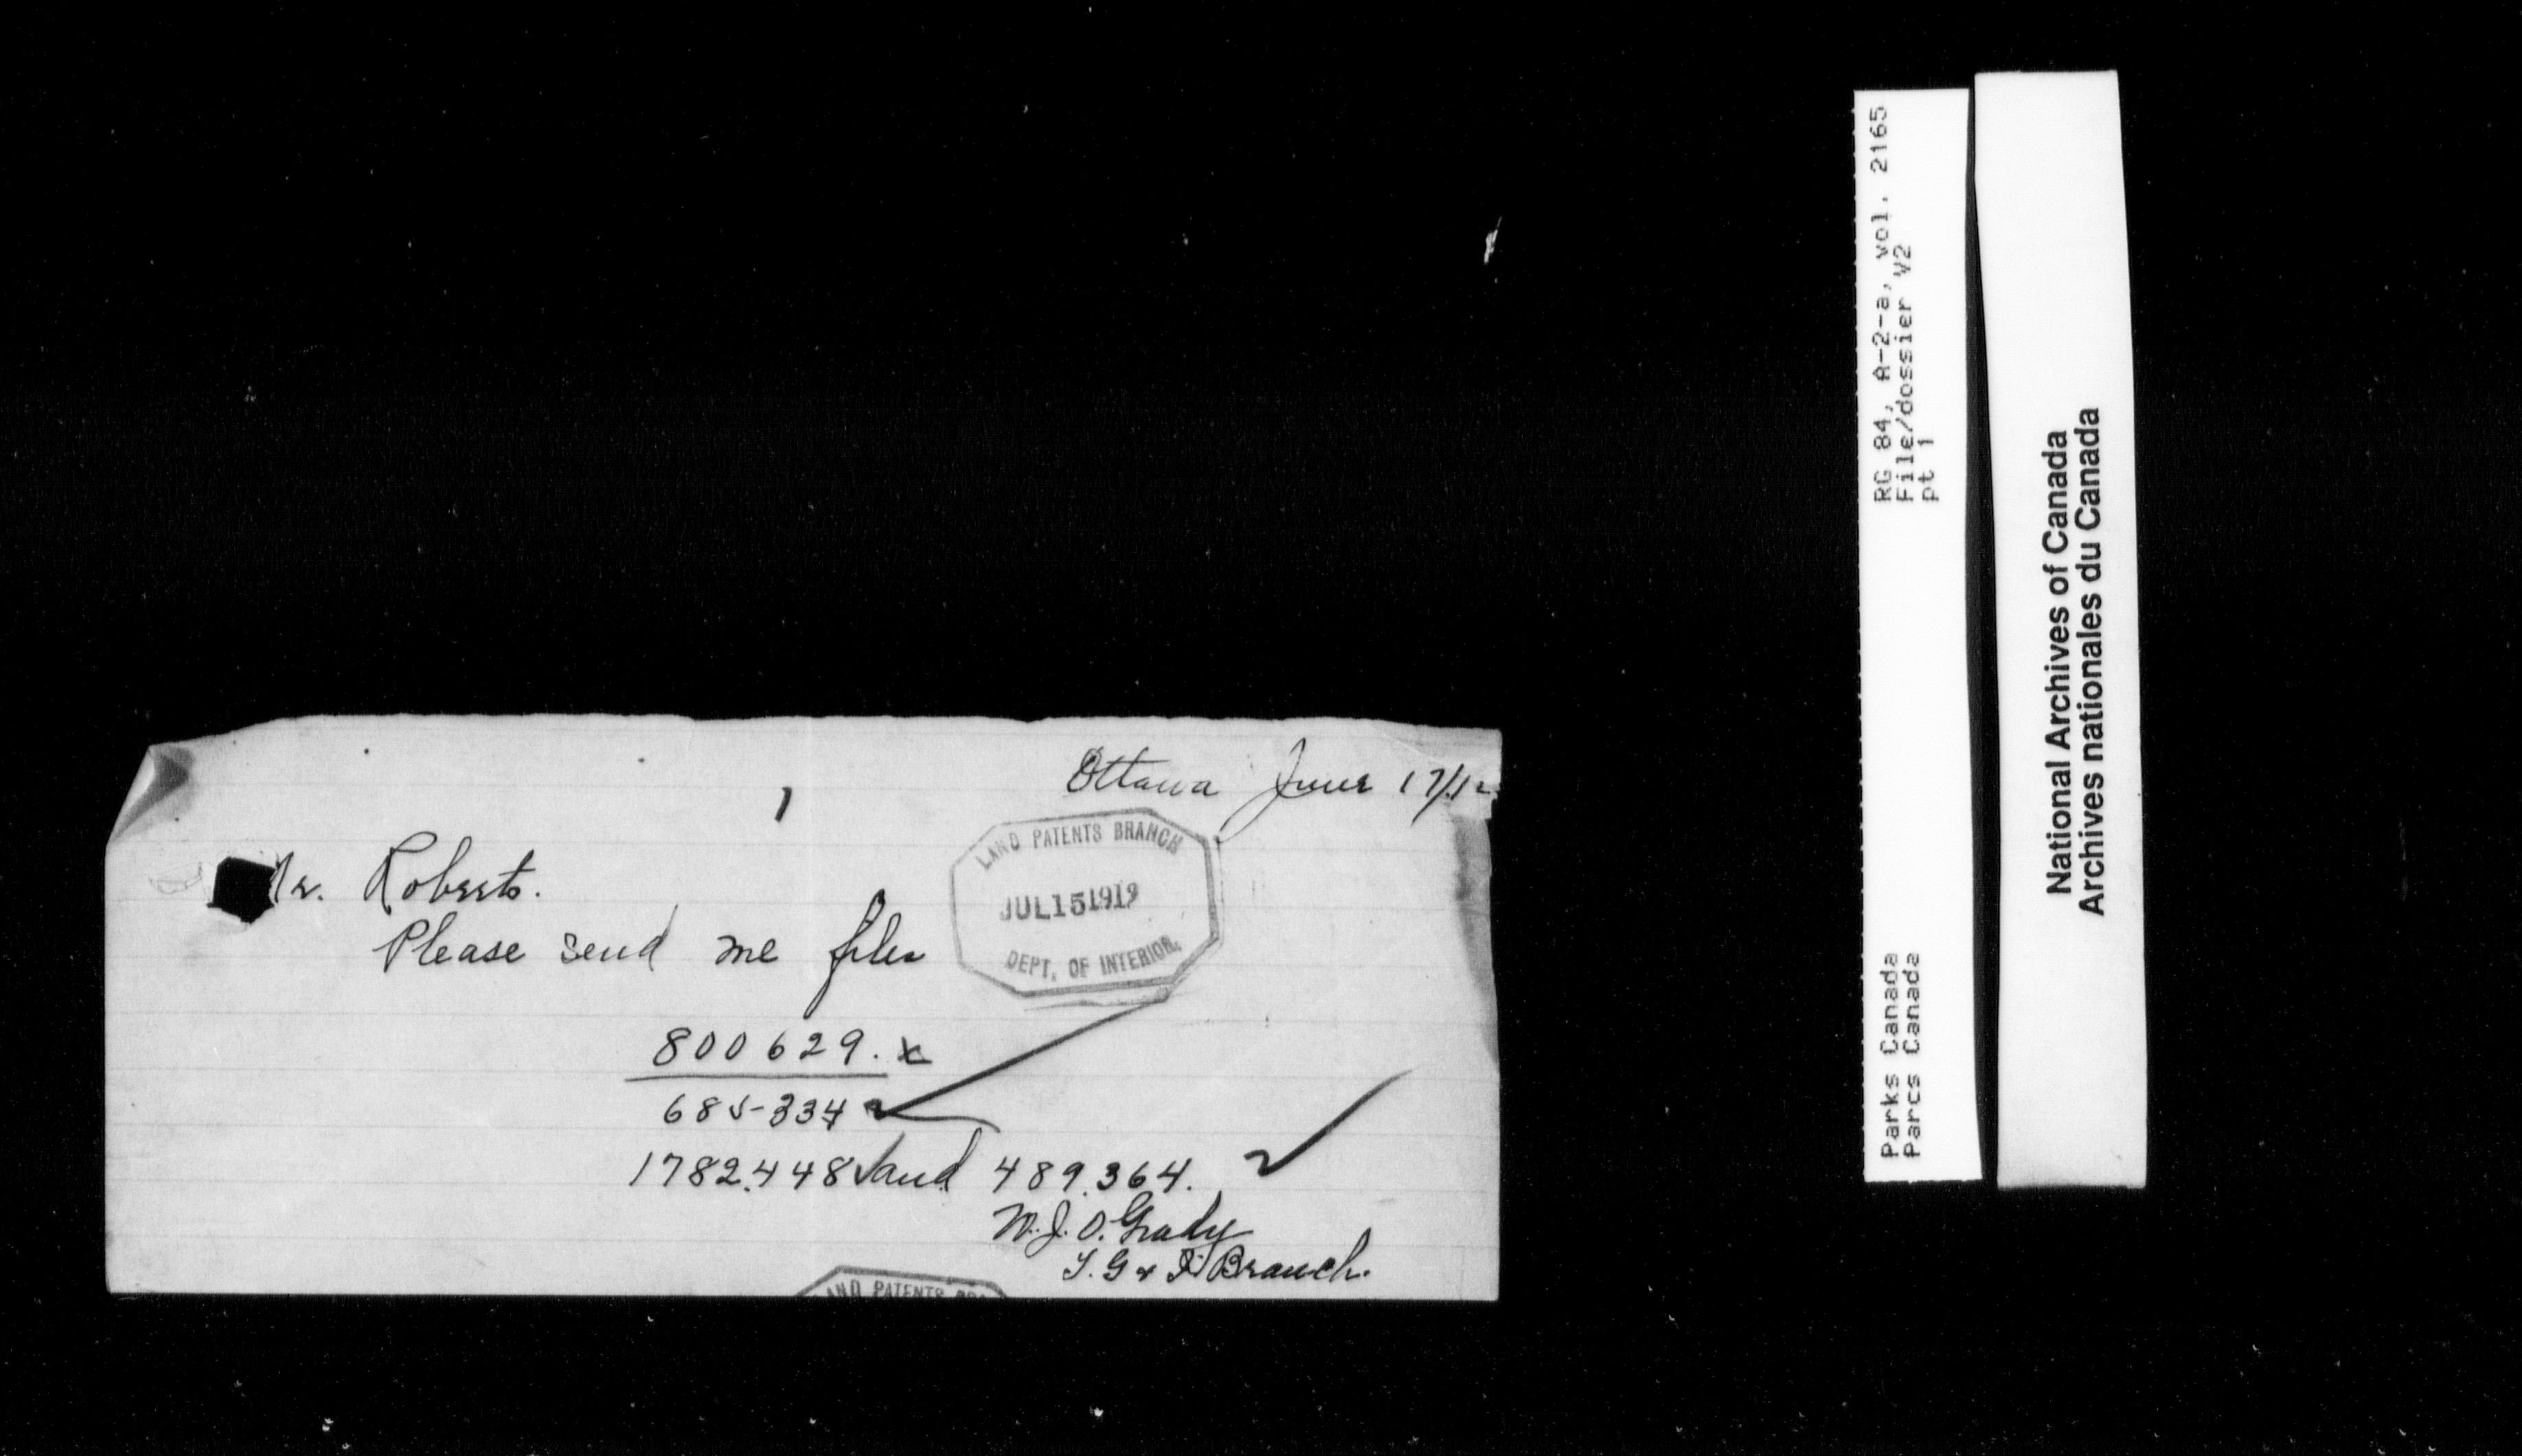 Ottawa June 17/12
1
LAND PATENTS BRANCH
JUL 15 1912
DEPT. OF INTERIOR.
Mr. Roberts.
Please send me files
800629. x
685-334
1782.448 and 489.364.
W. J. O. Grady
T. G & I Branch.
LAND PATENTS
RG 84, A-2-a, vol. 2165
File/dossier V2
pt 1
Parks Canada
Parcs Canada
National Archives of Canada
Archives nationales du Canada